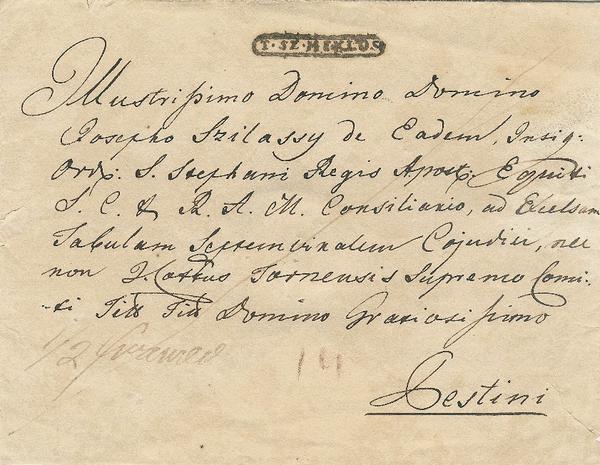 T·SZ·MIKLOS
Illustrissimo Domino Domino
Josepho Szilassy de Eadem, Insig:
Ord. S. Stephani Regis Apost. Equiti
S. C. & R. A. M. Consiliario, ad Excelsam
Tabulam Septemviralem Cojudici, nec
non I. Cottus Tornensis Supremo Comi:
ti Titt Titt Domino Gratiosissimo
1/2
14
Pestini